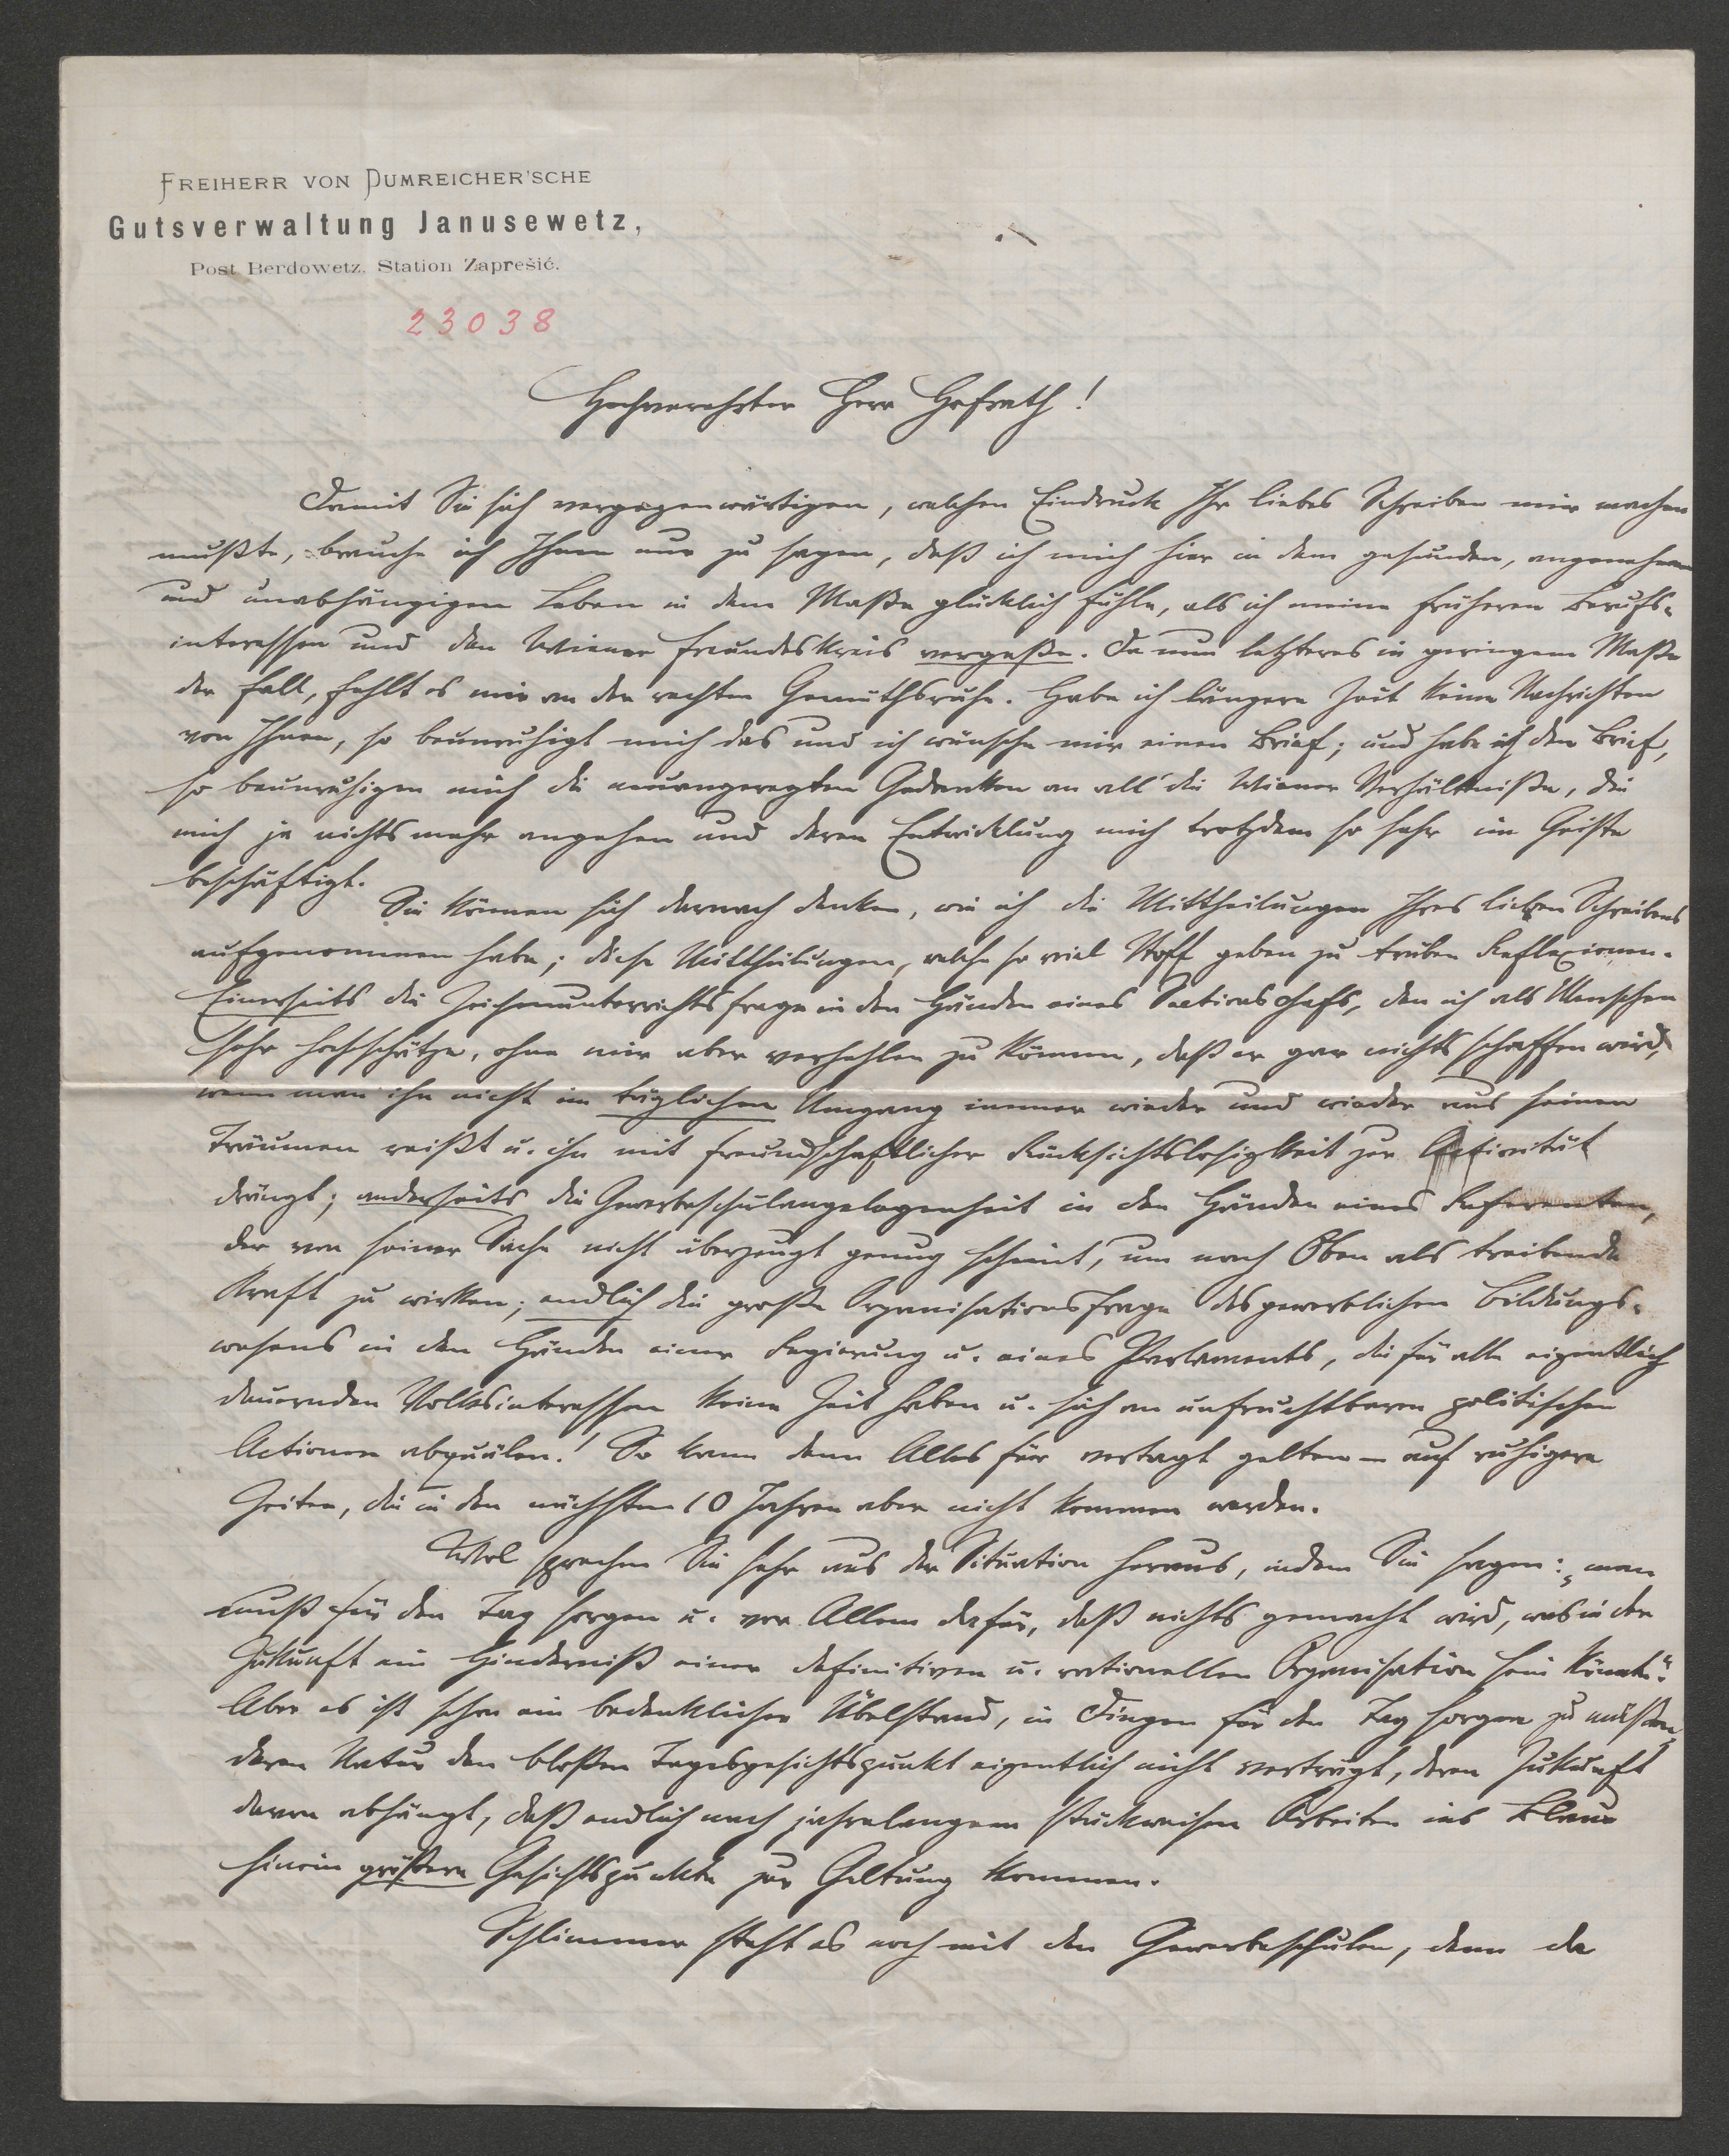 FREIHERR VON DUMREICHER'SCHE
Gutsverwaltung Janusewetz,
Post Berdowetz, Station Zaprešić.
23038
Hochverehrter Herr Hofrath!
Damit Sie sich vergegenwärtigen, welchen Eindruck Ihr liebes Schreiben mir machen
mußte, brauche ich Ihnen nur zu sagen, daß ich mich hier in dem gesunden, angenehmen
und unabhängigen Leben in dem Maße glücklich fühle, als ich meine früheren Berufs-
interessen und den Wiener Freundeskreis vergeße. Da nun letzteres in geringem Maße
der Fall, fehlt es mir an der rechten Gemüthsruhe. Habe ich längere Zeit keine Nachrichten
von Ihnen, so beunruhigt mich das und ich wünsche mir einen Brief; und habe ich den Brief,
so beunruhigen mich die neuangeregten Gedanken an all' die Wiener Verhältniße, die
mich ja nichts mehr angehen und deren Entwicklung mich trotzdem so sehr im Geiste
beschäftigt.
Sie können sich darnach denken, wie ich die Mittheilungen Ihres lieben Schreibens
aufgenommen habe; diese Mittheilungen, welche so viel Stoff geben zu trüben Reflexionen.
Einerseits die Zeichenunterrichtsfrage in den Händen eines Sectionschefs, den ich als Menschen
sehr hochschätze, ohne mir aber verhehlen zu können, daß er gar nichts schaffen wird,
wenn man ihn nicht im täglichen Umgang immer wieder und wieder aus seinen
Träumen reißt u. ihn mit freundschaftlicher Rücksichtslosigkeit zur Activität
drängt; anderseits die Gewerbeschulangelegenheit in den Händen eines Referenten,
der von seiner Sache nicht überzeugt genug scheint, um nach Oben als treibende
Kraft zu wirken; endlich die große Organisationsfrage des gewerblichen Bildungs-
wesens in den Händen einer Regierung u. eines Parlaments, die für alle eigentlich
dauernden Volksinteressen keine Zeit haben u. sich an unfruchtbaren politischen
Actionen abquälen! So kann denn Alles für vertagt gelten – auf ruhigere
Zeiten, die in den nächsten 10 Jahren aber nicht kommen werden.
Wol sprechen Sie sehr aus der Situation heraus, indem Sie sagen: „man
muß für den Tag sorgen u. vor Allem dafür, daß nichts gemacht wird, was in der
Zukunft ein Hinderniß einer definitiven u. rationellen Organisation sein könnte“.
Aber es ist schon ein bedenklicher Übelstand, in Dingen für den Tag sorgen zu müßen,
deren Natur den bloßen Tagesgesichtspunkt eigentlich nicht verträgt, deren Zukunft
davon abhängt, daß endlich nach jahrelangem stückweisen Arbeiten ins Blaue
hinein größere Gesichtspunkte zur Geltung kommen.
Schlimmer steht es noch mit den Gewerbeschulen, denn da